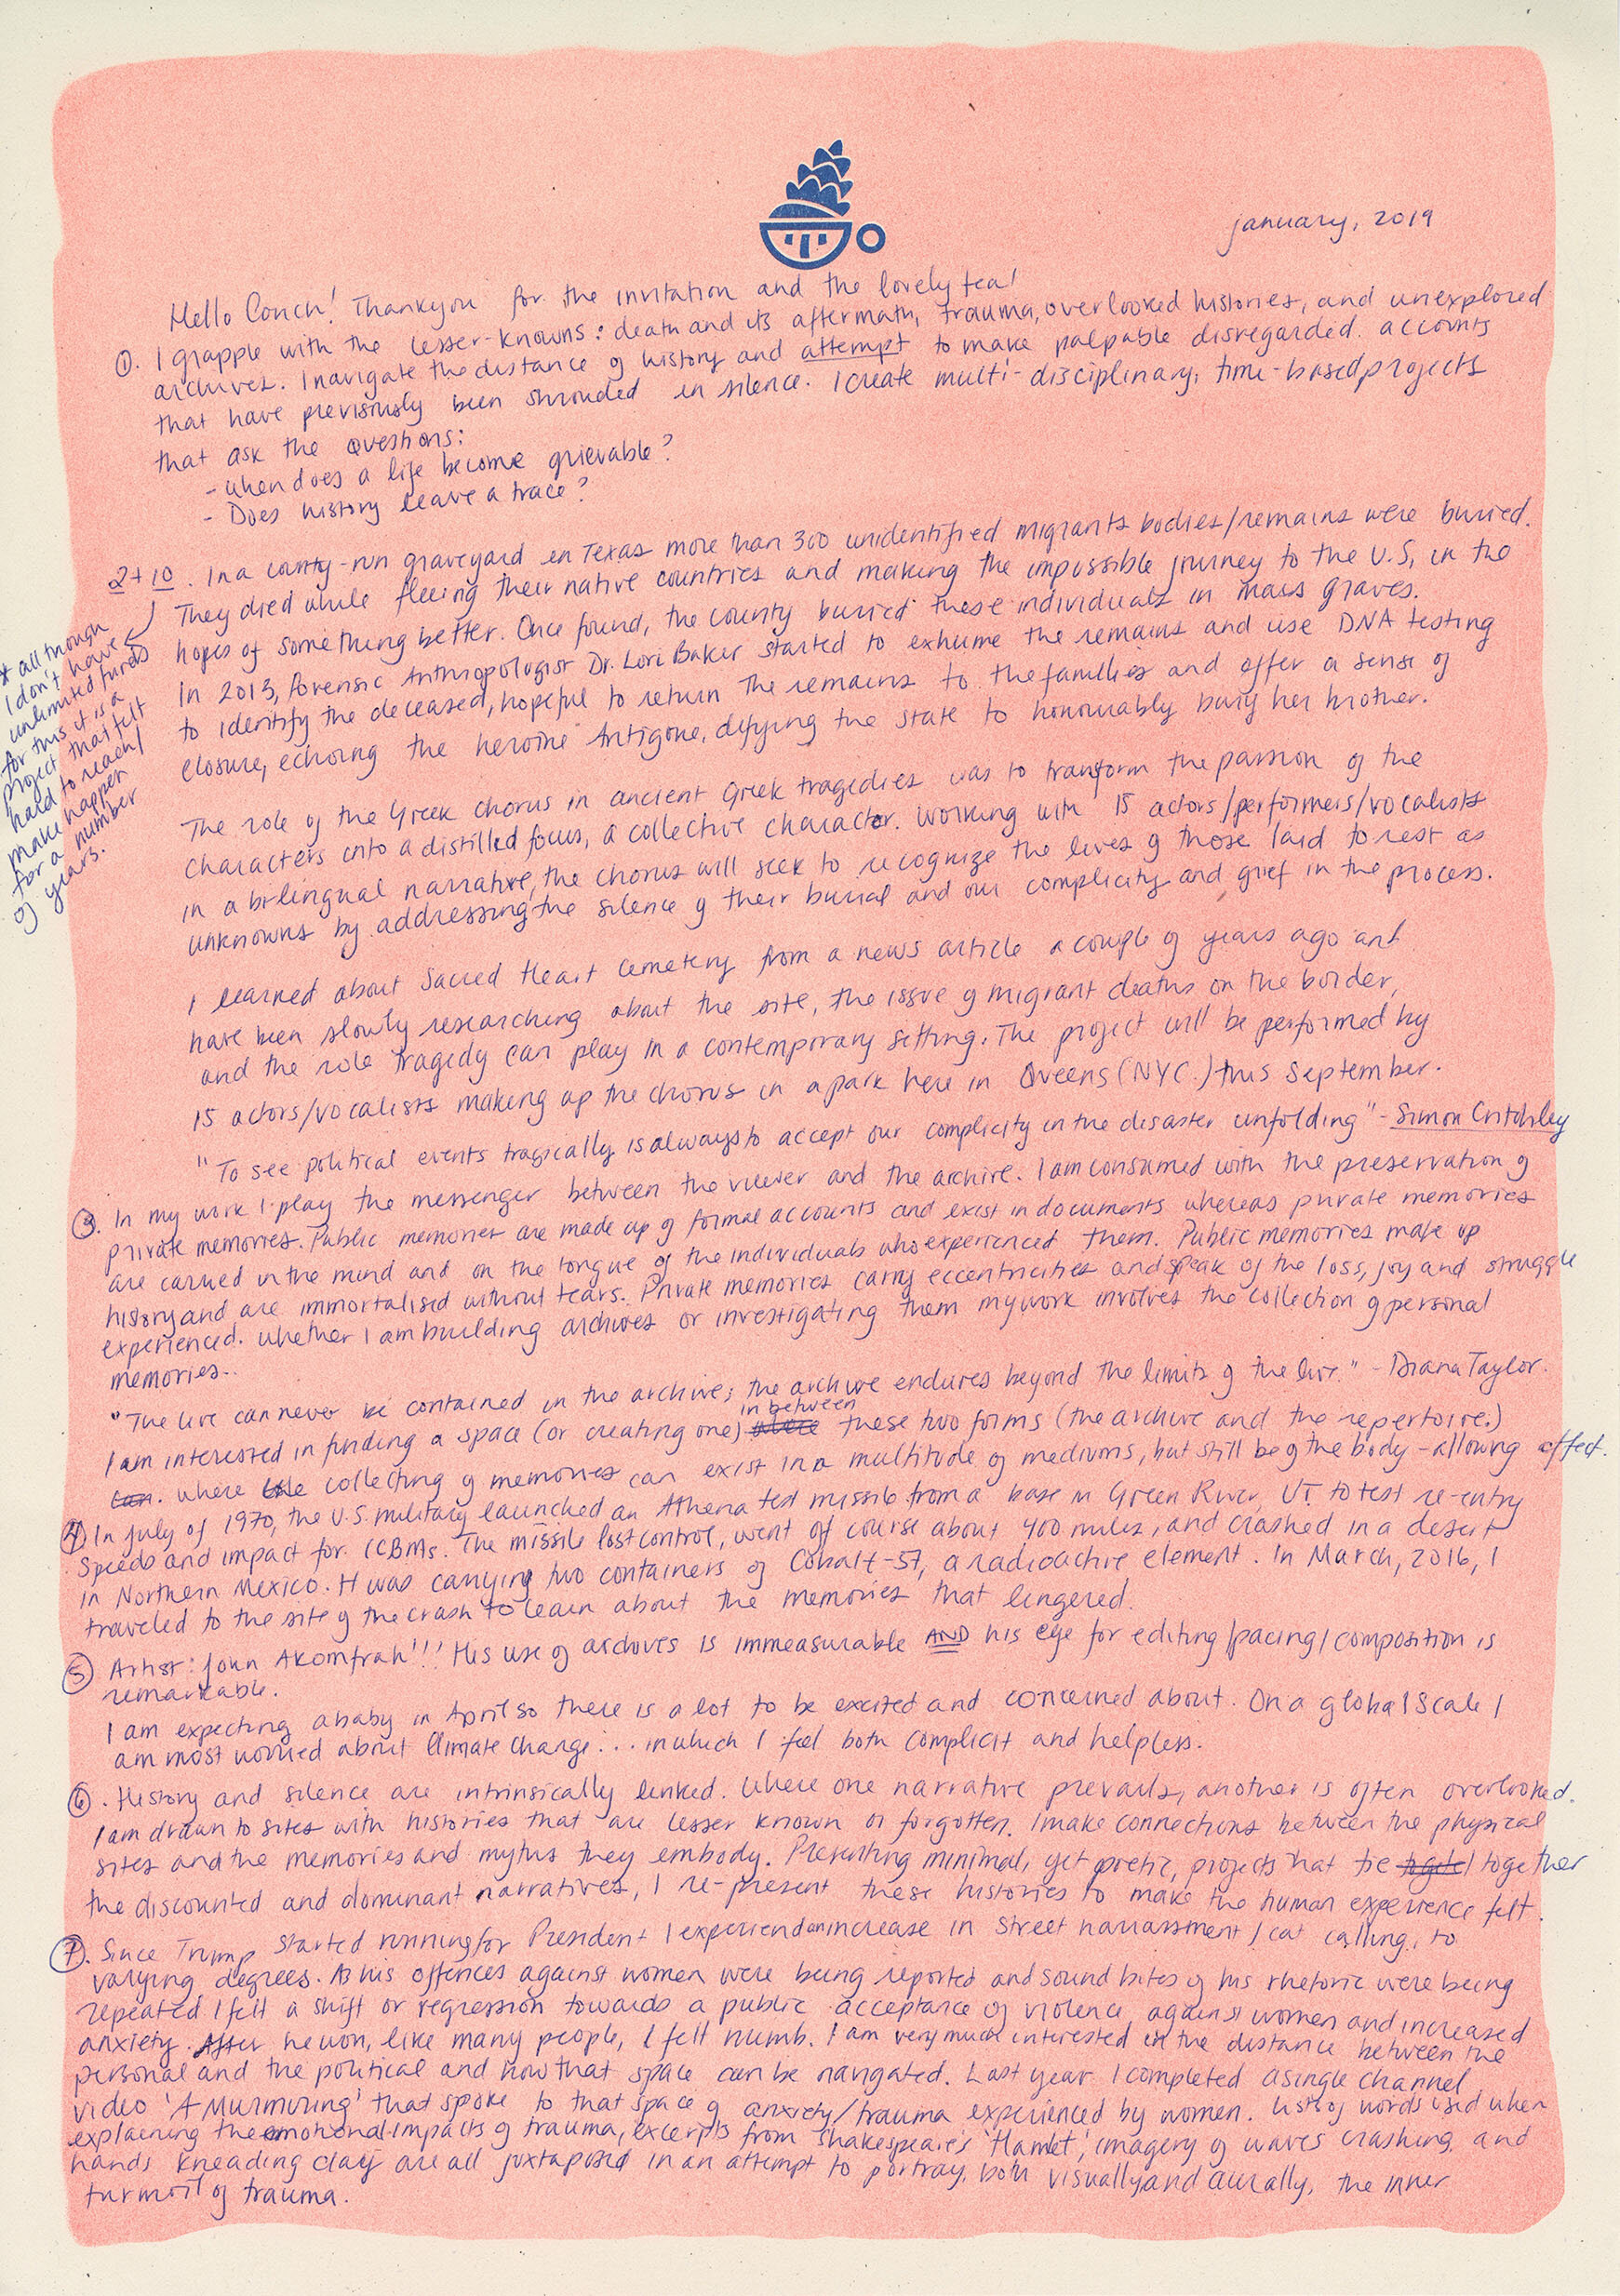 january, 2019
Hello Conch! Thankyou for the invitation and the lovely tea!
①. I grapple with the lesser-knowns: death and its aftermath, trauma, overlooked histories, and unexplored
archives. I navigate the distance of history and attempt to make palpable disregarded accounts
that have previously been shrouded in silence. I create multi-disciplinary, time-based projects
that ask the questions:
- when does a life become grievable?
- Does history leave a trace?
2+10. In a county-run graveyard in Texas more than 300 unidentified migrants bodies/remains were buried.
They died while fleeing their native countries and making the impossible journey to the U.S, in the
hopes of something better. Once found, the county buried these individuals in mass graves.
In 2013, Forensic Anthropologist Dr. Lori Baker started to exhume the remains and use DNA testing
to identify the deceased, hopeful to return the remains to the families and offer a sense of
closure, echoing the heroine Antigone, defying the state to honourably bury her brother.
* all though
I don't have
unlimited funds
for this it is a
project that felt
hard to reach/
make happen
for a number
of years.
The role of the Greek chorus in ancient Greek tragedies was to transform the passion of the
characters into a distilled focus, a collective character. Working with 15 actors/performers/vocalists
in a bi-lingual narrative, the chorus will seek to recognize the lives of those laid to rest as
unknowns by addressing the silence of their burial and our complicity and grief in the process.
I learned about Sacred Heart Cemetery from a news article a couple of years ago and
have been slowly researching about the site, the issue of migrant deaths on the border,
and the role tragedy can play in a contemporary setting. The project will be performed by
15 actors/vocalists making up the chorus in a park here in Queens (NYC.) this September.
"To see political events tragically is always to accept our complicity in the disaster unfolding" - Simon Critchley
③. In my work I play the messenger between the viewer and the archive. I am consumed with the preservation of
private memories. Public memories are made up of formal accounts and exist in documents whereas private memories
are carried in the mind and on the tongue of the individuals who experienced them. Public memories make up
history and are immortalised without tears. Private memories carry eccentricities and speak of the loss, joy and struggle
experienced. Whether I am building archives or investigating them my work involves the collection of personal
memories..
"The live can never be contained in the archive; the archive endures beyond the limits of the live." - Diana Taylor.
I am interested in finding a space (or creating one) where in between these two forms (the archive and the repertoire.)
can. where the collecting of memories can exist in a multitude of mediums, but still be of the body - allowing affect.
④ In July of 1970, the U.S. military launched an Athena test missile from a base in Green River, UT. to test re-entry
speeds and impact for ICBMs. The missile lost control, went off course about 400 miles, and crashed in a desert
in Northern Mexico. It was carrying two containers of Cobalt-57, a radioactive element. In March, 2016, I
traveled to the site of the crash to learn about the memories that lingered.
⑤ Artist: John Akomfrah!!! His use of archives is immeasurable AND his eye for editing/pacing/composition is
remarkable.
I am expecting a baby in April so there is a lot to be excited and concerned about. On a global scale I
am most worried about Climate Change... in which I feel both complicit and helpless.
⑥. History and silence are intrinsically linked. Where one narrative prevails, another is often overlooked.
I am drawn to sites with histories that are lesser known or forgotten. I make connections between the physical
sites and the memories and myths they embody. Presenting minimal, yet poetic, projects that tie together
the discounted and dominant narratives, I re-present these histories to make the human experience felt.
⑦. Since Trump started running for President I experienced an increase in street harrassment/cat calling, to
varying degrees. As his offences against women were being reported and sound bites of his rhetoric were being
repeated I felt a shift or regression towards a public acceptance of violence against women and increased
anxiety. After he won, like many people, I felt numb. I am very much interested in the distance between the
personal and the political and how that space can be navigated. Last year I completed a single channel
video 'A Murmuring' that spoke to that space of anxiety/trauma experienced by women. Lists of words used when
explaining the emotional impacts of trauma, excerpts from Shakespeare's 'Hamlet', imagery of waves crashing, and
hands kneading clay are all juxtaposed in an attempt to portray, both visually and aurally, the inner
turmoil of trauma.